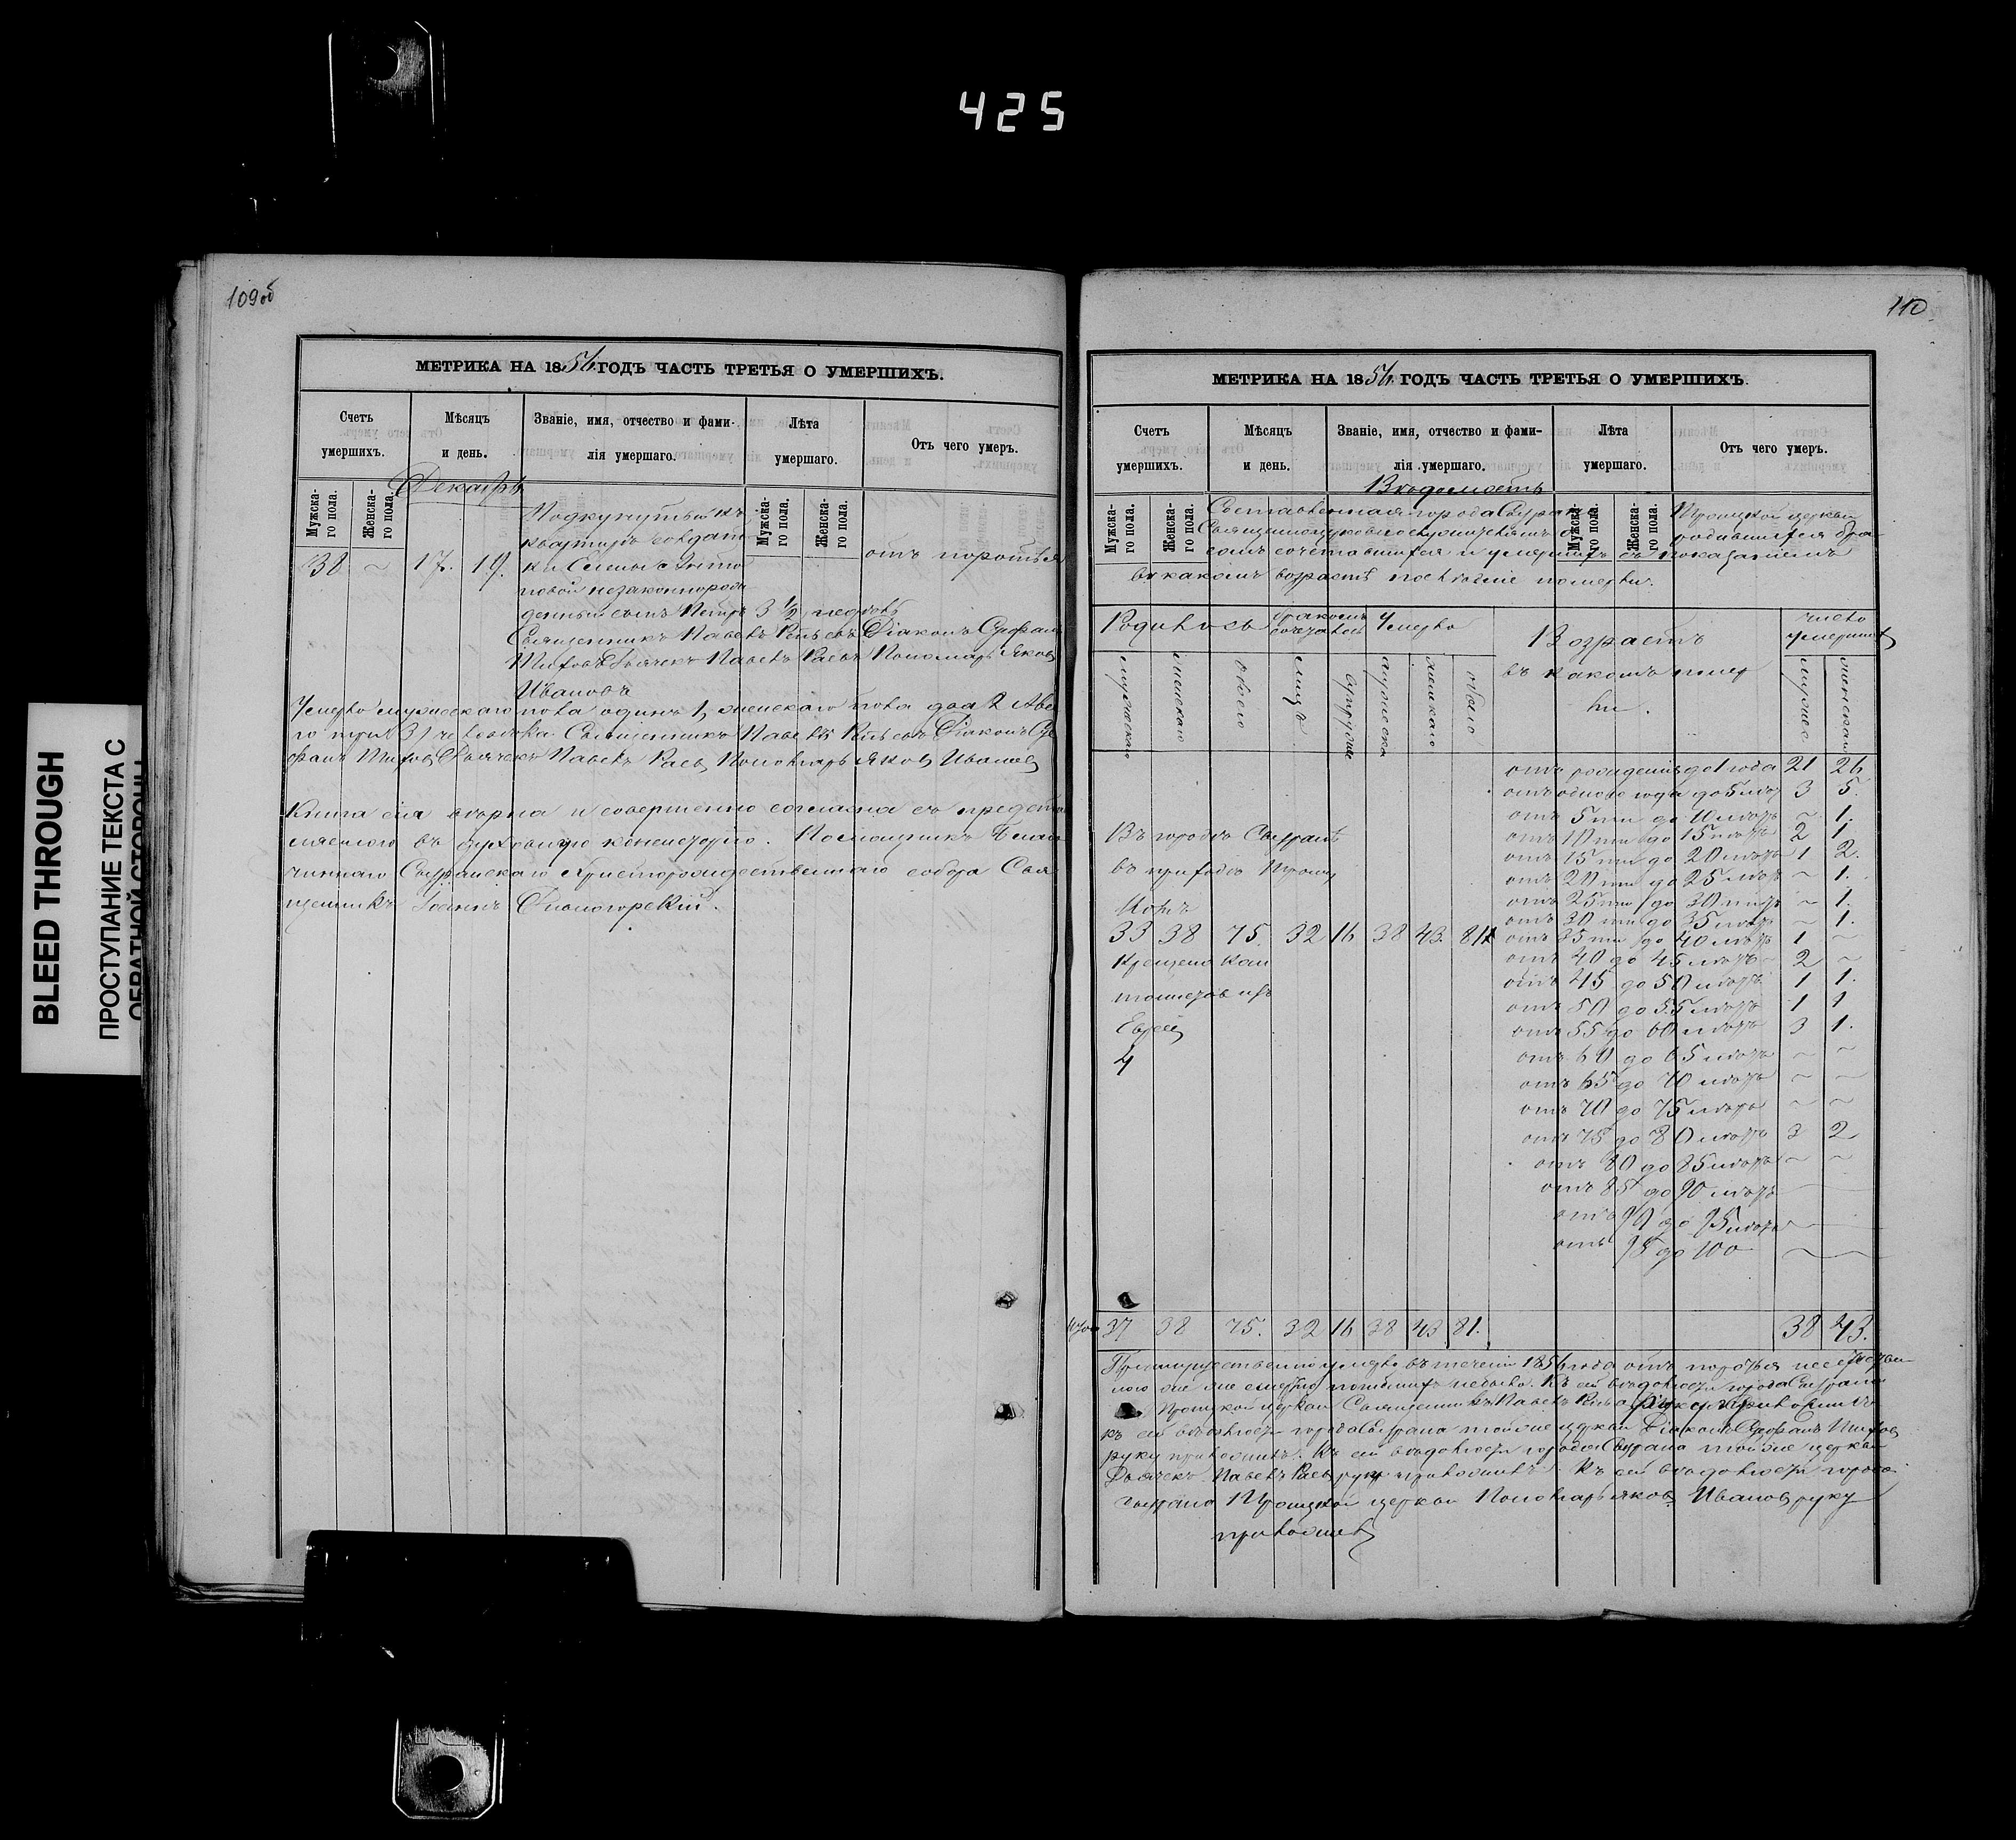 425
BLEED THROUGH
ПРОСТУПАНИЕ ТЕКСТА С
ОБРАТНОЙ СТОРОНЫ
109об
МЕТРИКА НА 1856 ГОДЪ ЧАСТЬ ТРЕТЬЯ О УМЕРШИХЪ.
Счетъ умершихъ.
Мѣсяцъ и день.
Званіе, имя, отчество и фами-
лія умершаго.
Лѣта умершаго.
Отъ чего умеръ.
Мужска-
го пола.
Женска-
го пола.
Мужска-
го пола.
Женска-
го пола.
Декабрь
38 ~ 17. 19.
квартирѣ солдат
незаконнорож
денный сынъ Петръ 3 1/2 недѣль
Священникъ Павелъ Діаконъ
Дьячекъ Павелъ Раевъ Пономарь Яковъ
Ивановъ
Умерло мужескаго пола одинъ 1, женскаго пола два 2 Обо
го три 3 человѣка Священникъ Павелъ Діаконъ
Дьячекъ Павелъ Раевъ Пономарь Яковъ Ивановъ
Книга сія вѣрна и совершенно согласна съ представ
ляемою въ духовную консисторію. Помощникъ Благо
чиннаго Сызранскаго Христорождественскаго собора Свя
щенникъ Іоаннъ
110
МЕТРИКА НА 1856 ГОДЪ ЧАСТЬ ТРЕТЬЯ О УМЕРШИХЪ.
Счетъ умершихъ.
Мѣсяцъ и день.
Званіе, имя, отчество и фами-
лія умершаго.
Лѣта умершаго.
Отъ чего умеръ.
Мужска-
го пола.
Женска-
го пола.
Мужска-
го пола.
Женска-
го пола.
Вѣдомость
Составленная города Сызрана Троицкой церкви
Священноцерковнослужителями о родившихся бра
комъ сочетавшихся и умершихъ съ показаніемъ
въ какомъ возрастѣ послѣдніе померли.
Родилось
бракомъ сочетались
Умерло
Возрастъ
въ какомъ помер
ли.
число умершихъ
мужескаго
женскаго
обоего
лицъ
супружествъ
мужеска
женскаго
обоего
мужес
женскаго
отъ рожденія до 1 года 21 26
отъ одного года до 5 лѣтъ 3 5.
отъ 5ти до 10 лѣтъ ~ 1.
отъ 10ти до 15 лѣтъ 2 1
отъ 15ти до 20 лѣтъ 1 2.
отъ 20ти до 25 лѣтъ ~ 1.
отъ 25ти до 30 лѣтъ ~ 1.
отъ 30ти до 35 лѣтъ ~ 1.
отъ 35ти до 40 лѣтъ 1 ~
отъ 40 до 45 лѣтъ 2 ~
отъ 45 до 50 лѣтъ 1 1.
отъ 50 до 55 лѣтъ 1 1
отъ 55 до 60 лѣтъ 3 1.
отъ 60 до 65 лѣтъ ~ ~
отъ 65 до 70 лѣтъ ~ ~
отъ 70 до 75 лѣтъ ~ ~
отъ 75 до 80 лѣтъ 3 2
отъ 80 до 85 лѣтъ ~ ~
отъ 85 до 90 лѣтъ
отъ 90 до 95 лѣтъ
отъ 95 до 100
Въ городѣ Сызранѣ
въ приходѣ Троиц
комъ
33 38 75. 32 16 38 43. 81
Крещено кан
тонистовъ изъ
Еврей
4
Итого 37 38 75. 32 16 38 43 81. 38 43.
Преимущественно умерло въ теченіи 1856 года отъ
же смертію погибшихъ небыло. Къ сей вѣдомости города Сызрана
Троицкой церкви Священникъ Павелъ руку приложилъ
къ сей вѣдомости города Сызрана тойже церкви Діаконъ
руку приложилъ. Къ сей вѣдомости города Сызрана тойже церкви
Дьячекъ Павелъ Раевъ руку приложилъ. Къ сей вѣдомости города
Сызрана Троицкой церкви Пономарь Яковъ Ивановъ руку
приложилъ